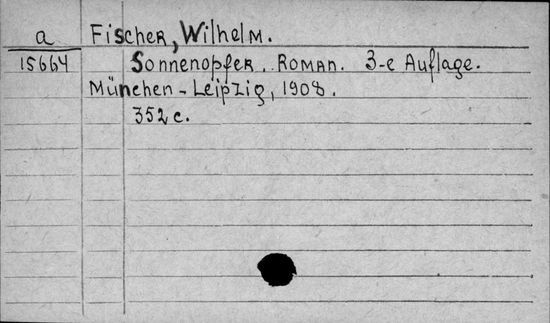 a Fischer, Wilhelm.
15664 Sonnenopfer. Roman. 3-e Auflage.
München - Leipzig, 1908.
352 c.